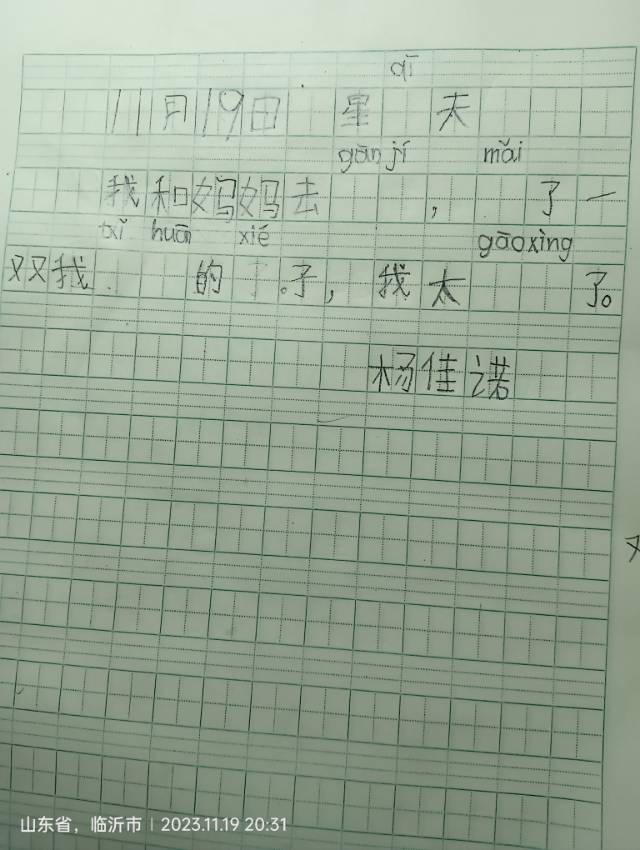 qī
11月19日 星 天
gǎn jí mǎi
我和妈妈去 , 了一
xǐ huān xié gāoxìng
双又我 的 子,我太 了。
杨佳诺
又
山东省,临沂市 | 2023.11.19 20:31